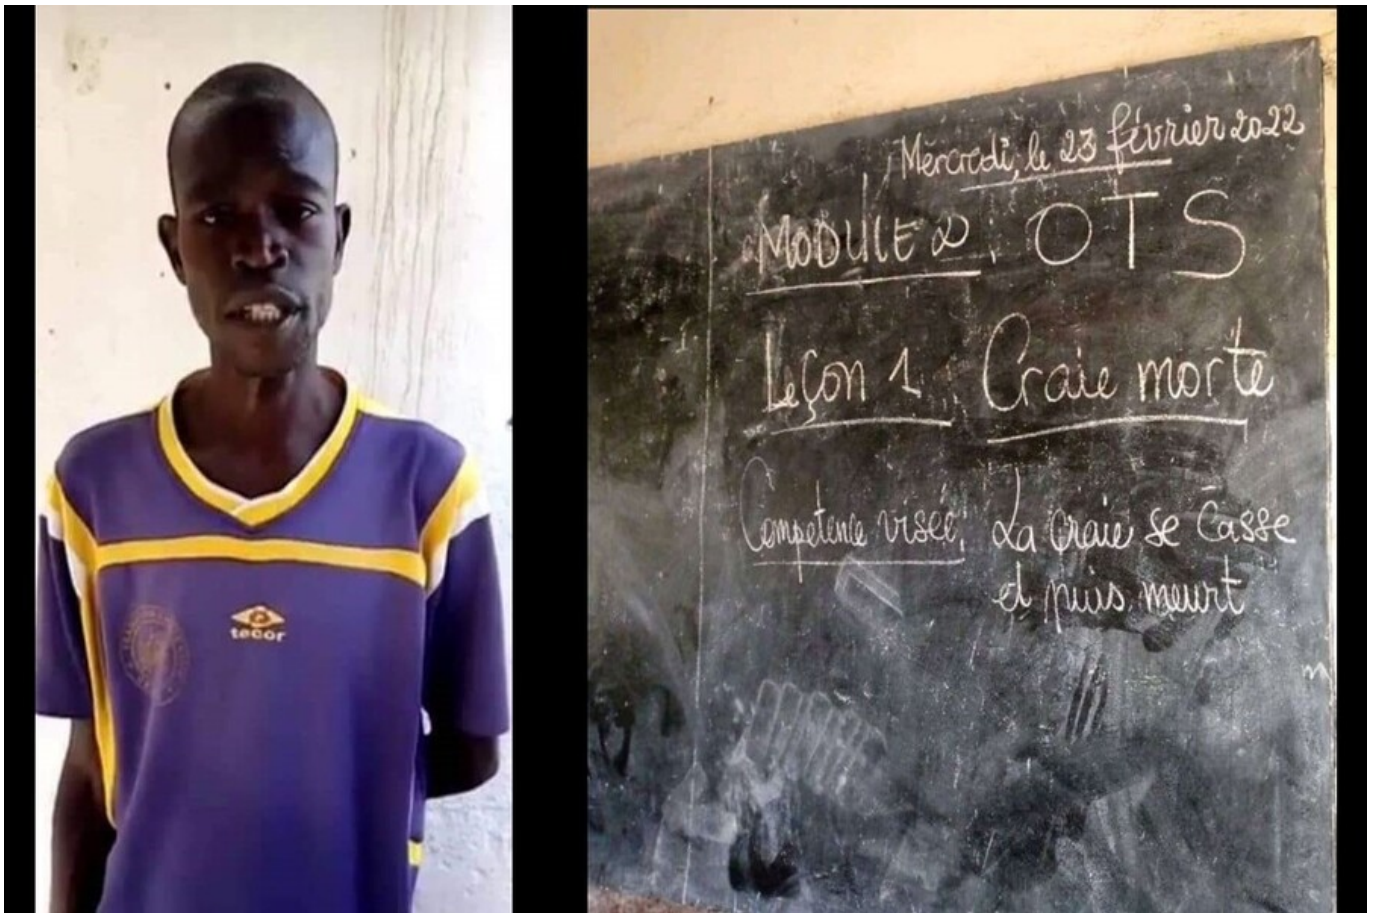 tecor
Mercredi, le 23 février 2022
MODULE 2: OTS
Leçon 1: Craie morte
Compétence visée: La craie se casse
et puis meurt